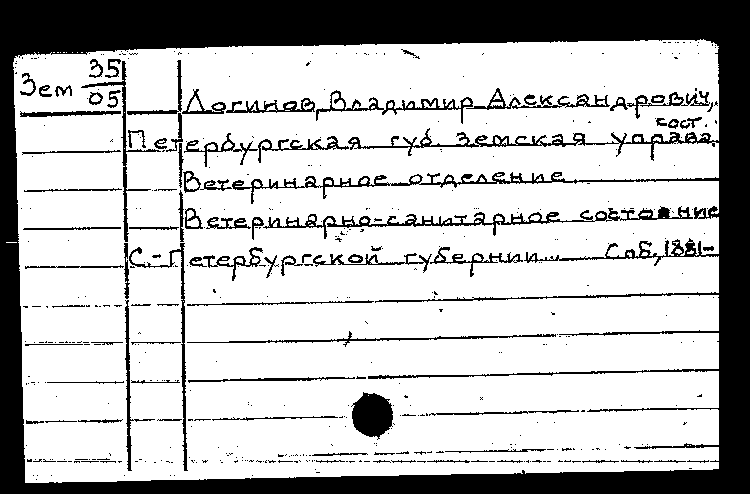 Зем 35
05
Логинов, Владимир Александрович,
сост.
Петербургская губ. земская управа.
Ветеринарное отделение.
Ветеринарно-санитарное состояние
С.-Петербургской губернии... Спб., 1881-